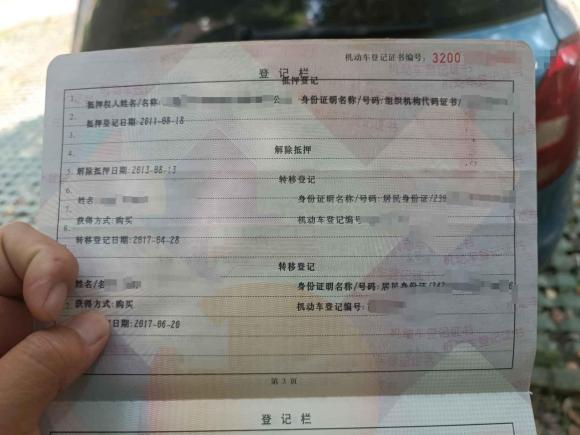 机动车登记证书编号: 3200
登记栏
抵押登记
1.
抵押权人姓名/名称: 公 身份证明名称/号码:组织机构代码证书/
2.
抵押登记日期:2011-08-18
3.
解除抵押
4.
解除抵押日期:2013-08-13
5.
转移登记
6.
姓名 身份证明名称/号码:居民身份证/230
获得方式:购买 机动车登记编号
转移登记日期:2017-04-28
转移登记
姓名/名 身份证明名称/号码:居民身份证/342 6
获得方式:购买 机动车登记编号:
日期:2017-06-20
第3页
登记栏